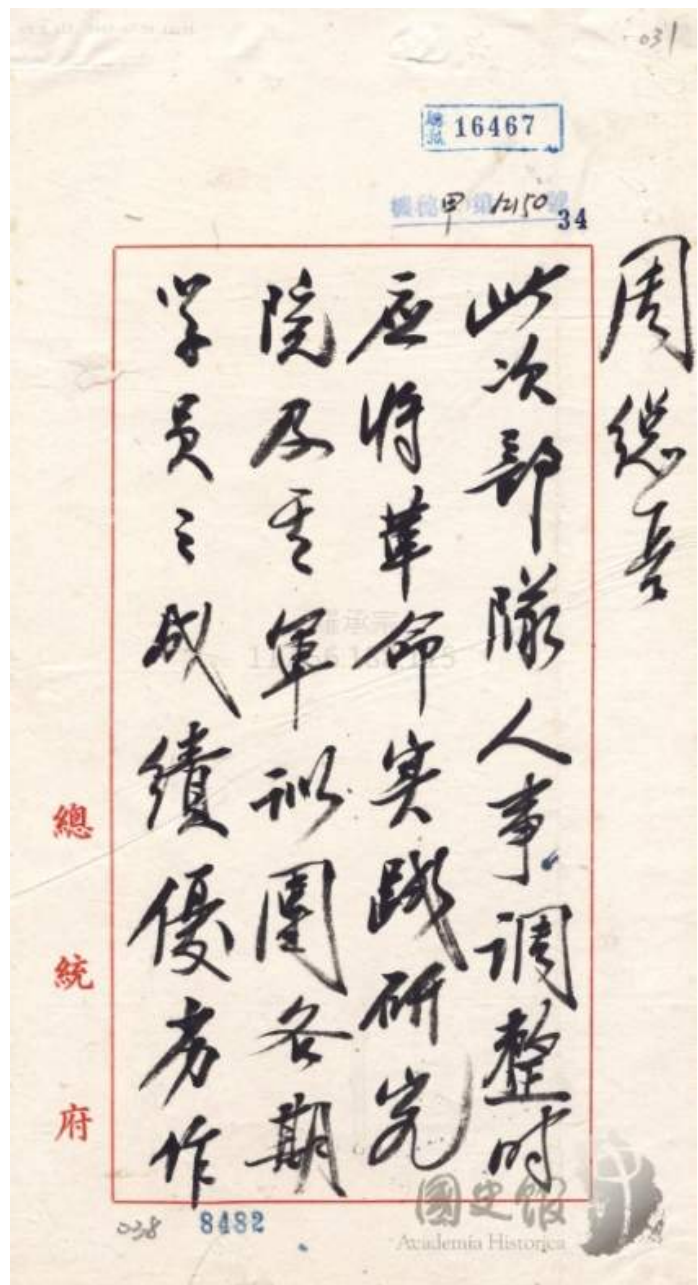 031
16467
機秘甲第12150號
34
周總長
此次部隊人事调整时
应将革命实践研究
院及軍训團各期
学员之成績優劣作
總統府
038 8482
國史館
Academia Historica